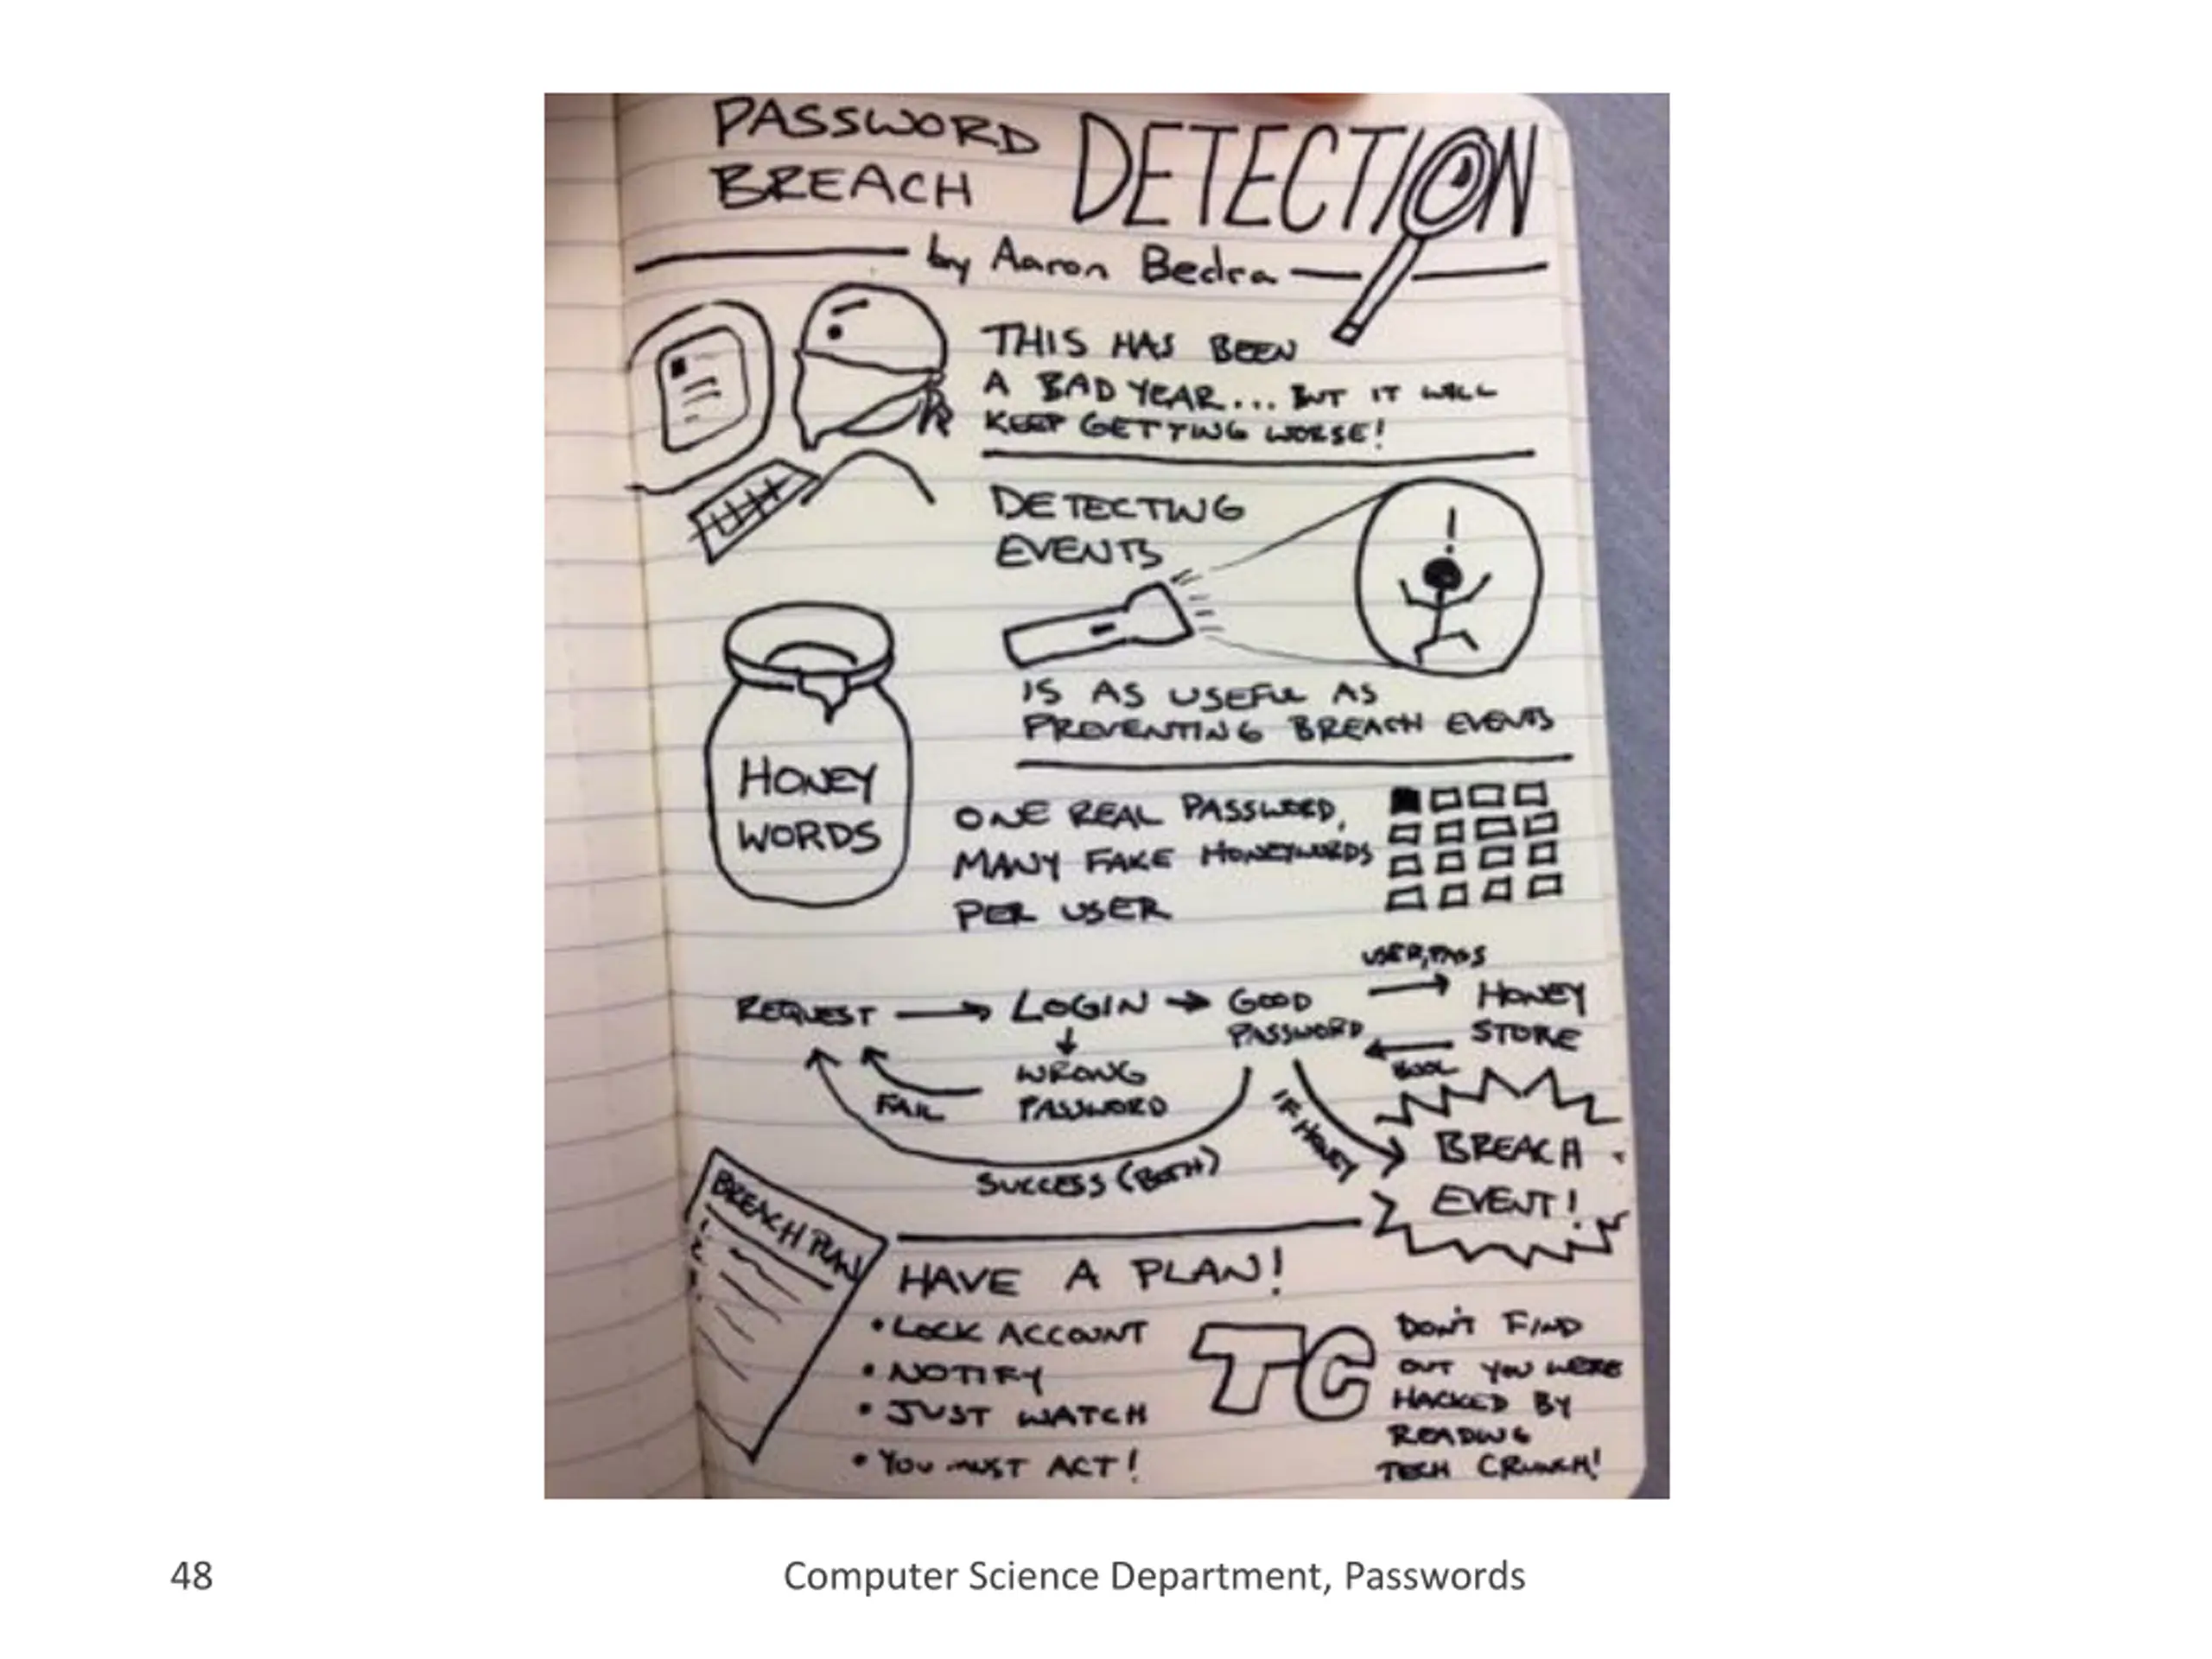 PASSWORD
BREACH
DETECTION
by Aaron Bedra
THIS HAS BEEN
A BAD YEAR... BUT IT WILL
KEEP GETTING WORSE!
DETECTING
EVENTS
!
IS AS USEFUL AS
PREVENTING BREACH EVENTS
HONEY
WORDS
ONE REAL PASSWORD,
MANY FAKE HONEYWORDS
PER USER
USER, PASS
REQUEST → LOGIN → GOOD
PASSWORD
HONEY
STORE
BOOL
WRONG
PASSWORD
FAIL
SUCCESS (BOTH)
IF HONEY
BREACH
EVENT!
BREACH PLAN
1.
2.
3.
HAVE A PLAN!
• LOCK ACCOUNT
• NOTIFY
• JUST WATCH
• YOU MUST ACT!
TC
DON'T FIND
OUT YOU WERE
HACKED BY
READING
TECH CRUNCH!
48
Computer Science Department, Passwords